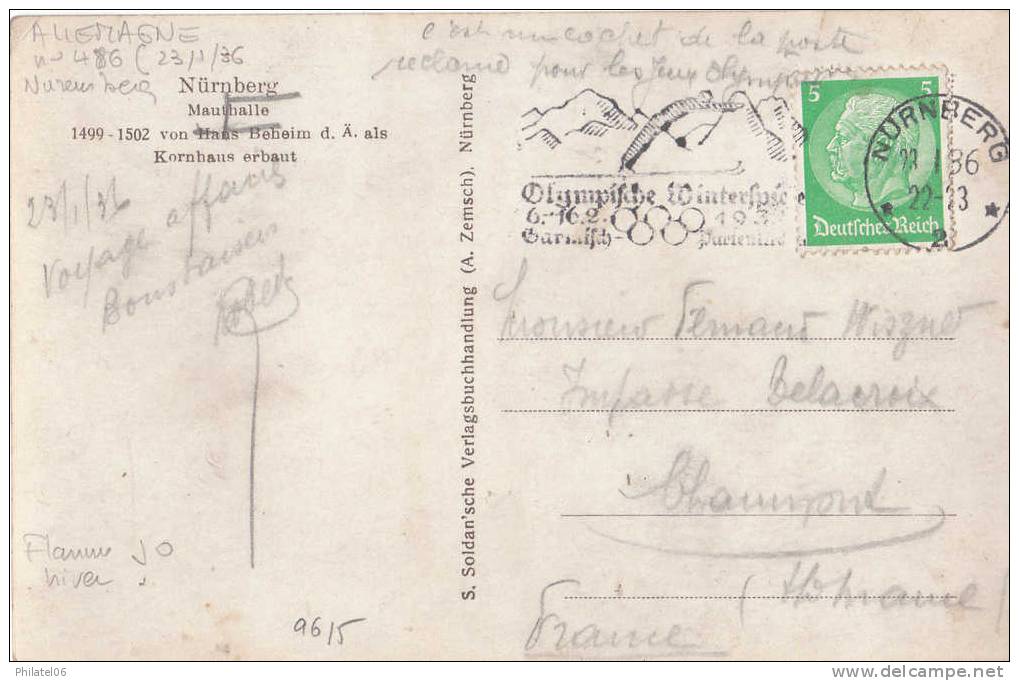 ALLEMAGNE
n° 486 (23/1/36
Nuremberg
c'est un cachet de la poste
reclame pour les Jeux Olympiques
Nürnberg
Mauthalle
1499-1502 von Hans Beheim d. Ä. als
Kornhaus erbaut
23/1/36
Voyage affaires
Bons baisers
Flamme JO
hiver
96/5
S. Soldan'sche Verlagsbuchhandlung (A. Zemsch), Nürnberg
Olympische Winterspi
6.-16.2. 193
Garmisch- Partenki
5 5
Deutsches Reich
NÜRNBERG
1.36
22-23
2
Monsieur Fernand
Impasse Delacroix
Chaumont
(Hte Marne)
France
Philatel06
delcampe.net